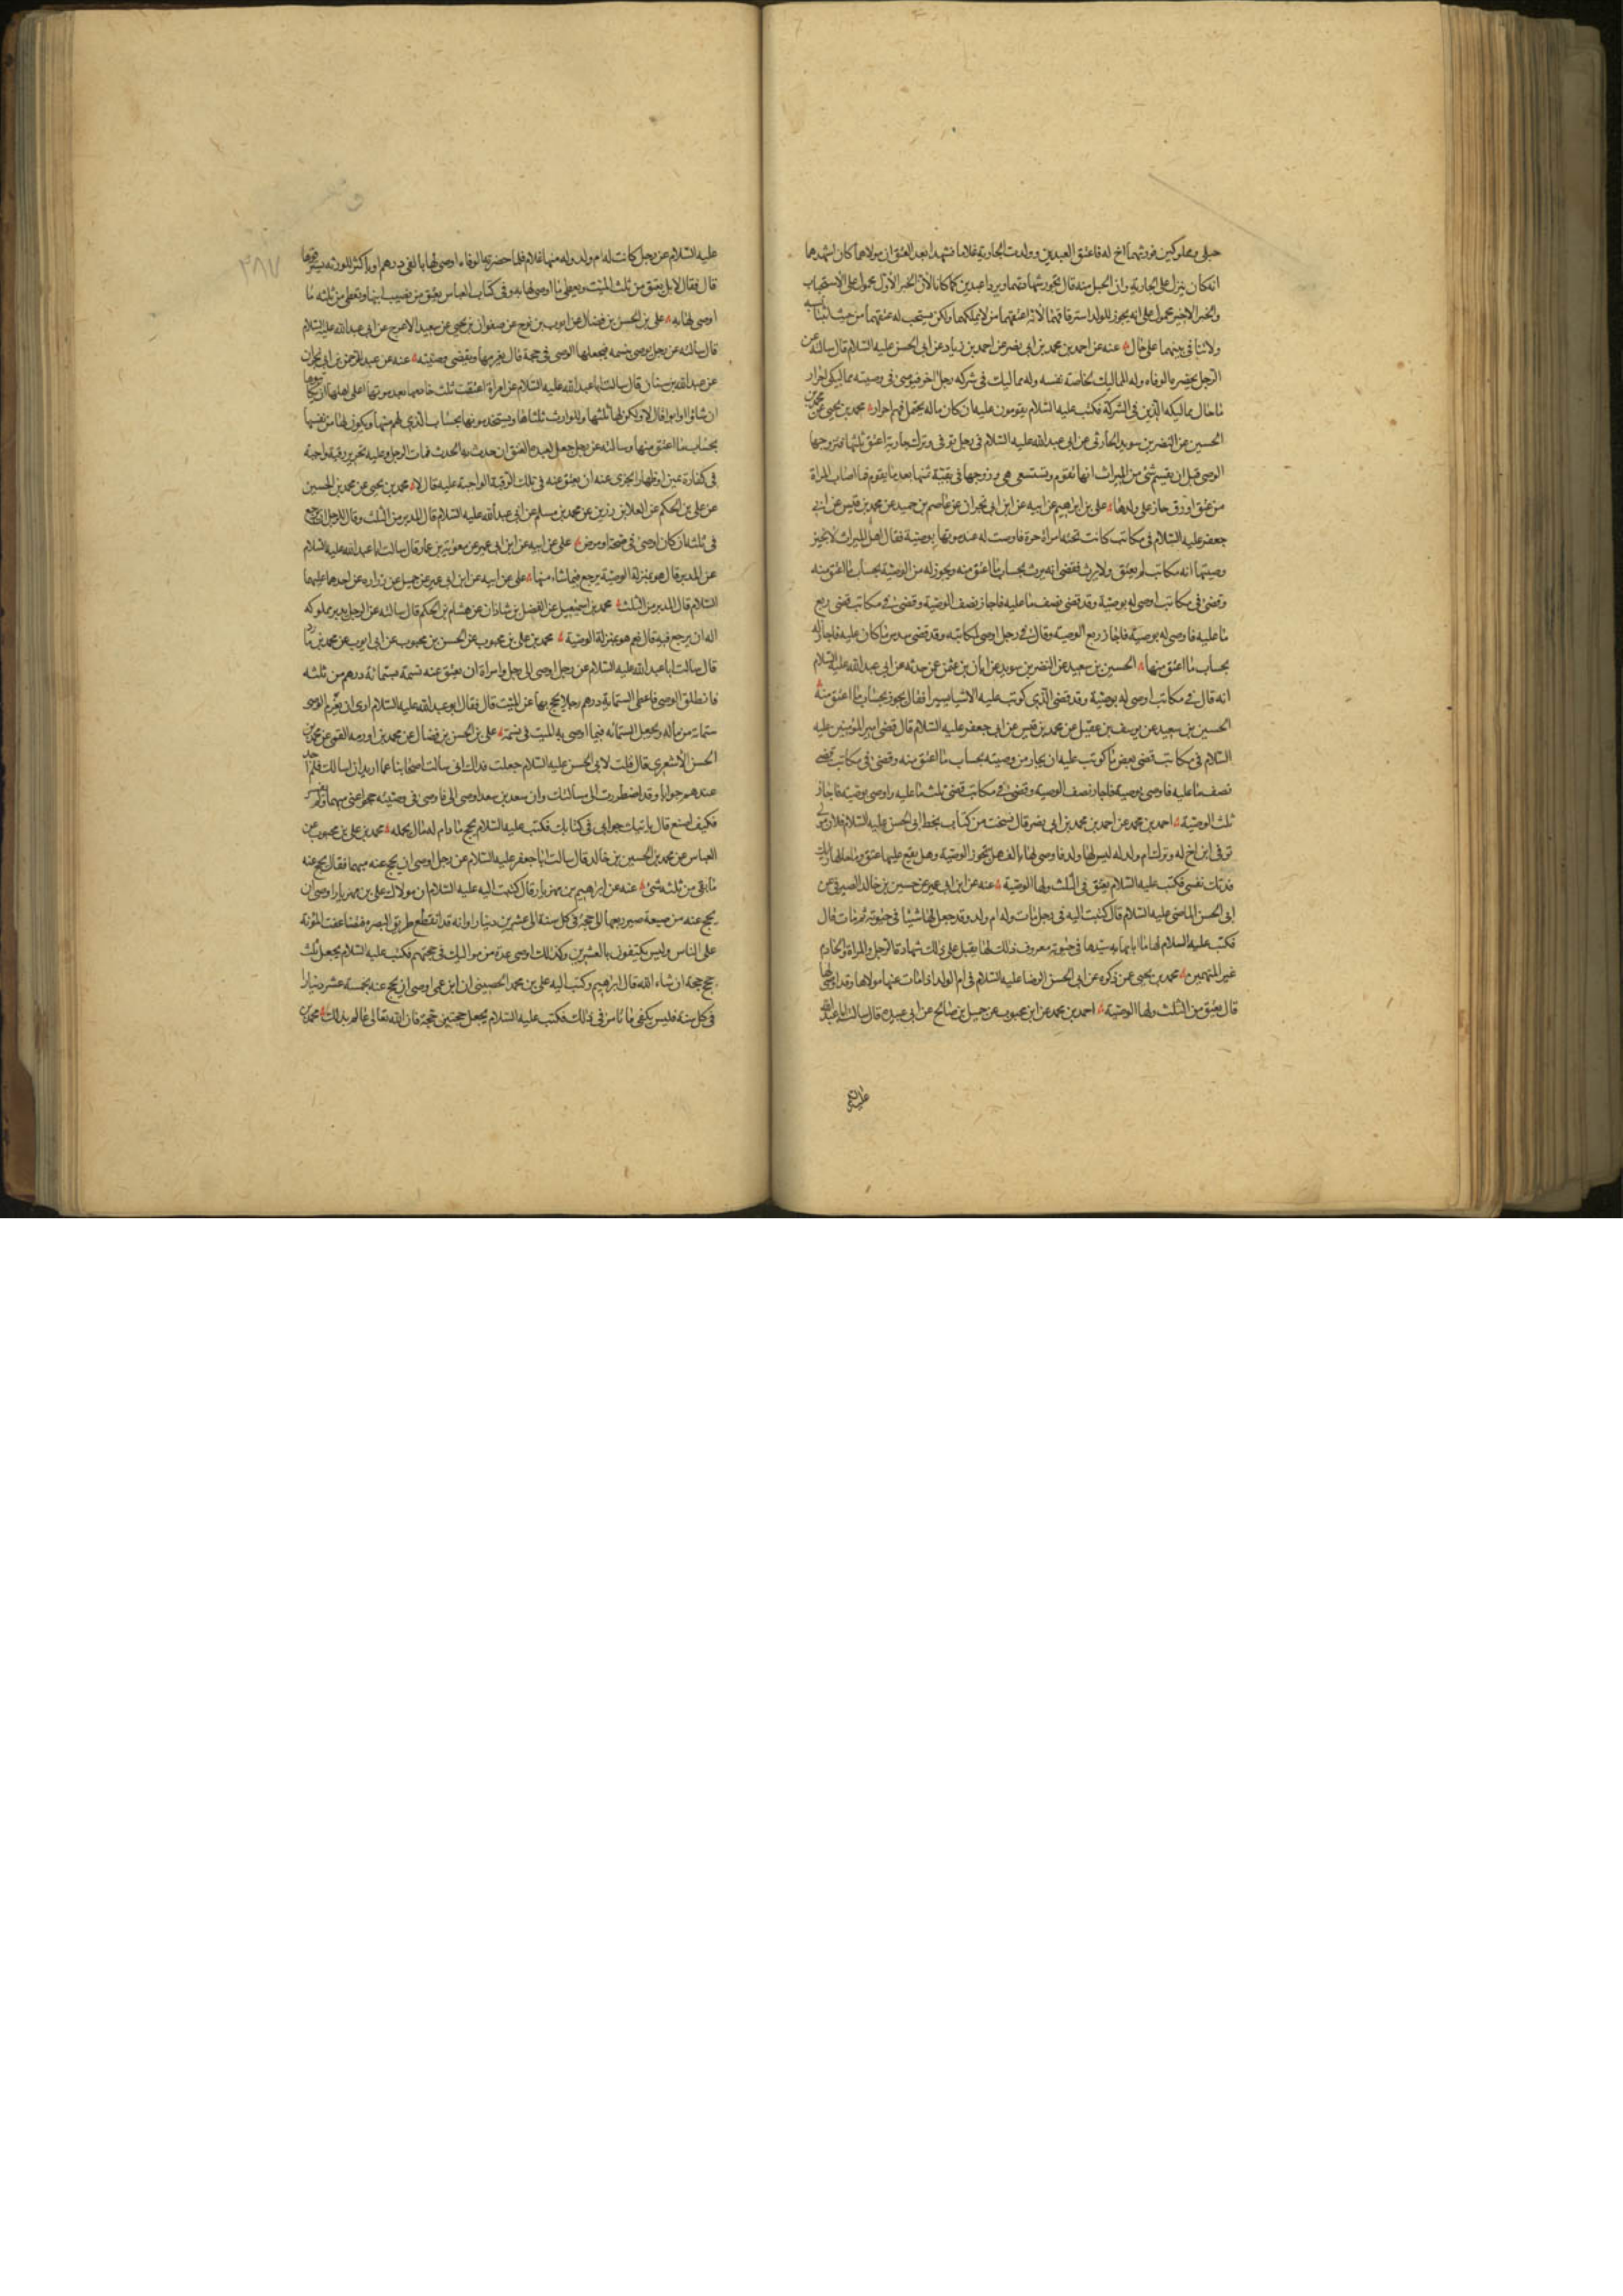 حبلى ومملوكين فورثهما اخ له فاعتق العبدين وولدت الجارية غلاما فشهدا بعد العتق ان مولاهما كان اشهدهما
انه كان ينزل على الجارية وان الحبل منه قال تجوز شهادتهما ويردا عبدين كما كانا لان الخبر الاول محمول على الاستحباب
والخبر الاخير محمول على انه يجوز للولد استرقاقهما لانه اعتقهما من لا يملكهما ولكن يستحب له عتقهما من حيث اثبتا نسبه
ولا تنافى بينهما على حال عنه عن احمد بن محمد بن ابى نصر عن احمد بن زياد عن ابى الحسن عليه السلام قال سالته عن
الرجل يحضره الوفاه وله المماليك لخاصة نفسه وله مماليك فى شركه رجل اخر فيوصى فى وصيته مماليكى احرار
ما حال مماليكه الذين فى الشركة فكتب عليه السلام يقومون عليه ان كان ماله يحتمل فهم احرار محمد بن يحيى عن محمد بن
الحسين عن النضر بن سويد الحارثى عن ابى عبد الله عليه السلام فى رجل توفى وترك جارية اعتق ثلثها فتزوجها
الوصى قبل ان يقسم شئ من الميراث انها تقوم وتستسعى هى وزوجها فى بقية ثمنها بعد ما يقوم فما اصاب المراة
من عتق او رق جاز على ولدها على بن ابراهيم عن ابيه عن ابن ابى نجران عن عاصم بن حميد عن محمد بن قيس عن ابى
جعفر عليه السلام فى مكاتب كانت تحته امراة حرة فاوصت له عند موتها بوصية فقال اهل الميراث لا نجيز
وصيتها انه مكاتب لم يعتق ولا يرث فقضى انه يرث بحساب ما اعتق منه ويجوز له من الوصية بحساب ما اعتق منه
وقضى فى مكاتب اوصى له بوصية وقد قضى نصف ما عليه فاجاز نصف الوصية وقضى فى مكاتب قضى ربع
ما عليه فاوصى له بوصية فاجاز ربع الوصية وقال فى رجل اوصى لمكاتبه وقد قضى سدس ما كان عليه فاجاز له
بحساب ما اعتق منها الحسين بن سعيد عن النضر بن سويد عن ابان بن عثمن عمن حدثه عن ابى عبد الله عليه السلام
انه قال فى مكاتب اوصى له بوصية وقد قضى الذى كوتب عليه الا شيا يسيرا فقال يجوز بحساب ما اعتق منه
الحسين بن سعيد عن يوسف بن عقيل عن محمد بن قيس عن ابى جعفر عليه السلام قال قضى امير المؤمنين عليه
السلام فى مكاتب قضى بعض ما كوتب عليه ان يجاز من وصيته بحساب ما اعتق منه وقضى فى مكاتب قضى
نصف ما عليه فاوصى بوصية فاجاز نصف الوصية وقضى فى مكاتب قضى ثلث ما عليه واوصى بوصية فاجاز
ثلث الوصية احمد بن محمد عن احمد بن محمد بن ابى نصر قال نسخت من كتاب بخط ابى الحسن عليه السلام فلان مولى
توفى ابن اخ له وترك ام ولد له ليس لها ولد فاوصى لها بالف هل تجوز الوصية وهل يقع عليها عتق وما حالها رايك
فدتك نفسى فكتب عليه السلام يعتق فى الثلث ولها الوصية عنه عن ابن ابى عمير عن حسين بن خالد الصيرفى عن
ابى الحسن الماضى عليه السلام قال كتبت اليه فى رجل مات وله ام ولد وقد جعل لها شيئا فى حيوته ثم مات قال
فكتب عليه السلام لها ما اثابها به سيدها فى حيوته معروف ذلك لها يقبل على ذلك شهادة الرجل والمراة والخادم
غير المتهمين محمد بن يحيى عمن ذكره عن ابى الحسن الرضا عليه السلام فى ام الولد اذا مات عنها مولاها وقد اوصى لها
قال يعتق من الثلث ولها الوصية احمد بن محمد عن ابن محبوب عن جميل بن صالح عن ابى عبيده قال سالت ابا عبد الله
عليه السلام عن رجل كانت له ام ولد وله منها غلام فلما حضرته الوفاه اوصى لها بالفى درهم او باكثر للورثه ان يسترقوها
قال فقال لا بل يعتق من ثلث الميت ويعطى ما اوصى لها به وفى كتاب العباس يعتق من نصيب ابنها وتعطى من ثلثه ما
اوصى لها به على بن الحسن بن فضال عن ايوب بن نوح عن صفوان بن يحيى عن سعيد الاعرج عن ابى عبد الله عليه السلام
قال سالته عن رجل يوصى بنسمه فيجعلها الوصى فى حجة قال يغرمها ويقضى وصيته عنه عن عبد الرحمن بن ابى نجران
عن عبد الله بن سنان قال سالت ابا عبد الله عليه السلام عن امراة اعتقت ثلث خادمها بعد موتها اعلى اهلها ان يكاتبوها
ان شاؤا او ابوا قال لا ولكن لها ثلثها وللوارث ثلثاها ويستخدمونها بحساب الذى لهم منها ويكون لها من نفسها
بحساب ما اعتق منها وسالته عن رجل جعل لعبده العتق ان حدث به الحدث فمات الرجل وعليه تحرير رقبة واجبة
فى كفارة يمين او ظهار ايجزى عنه ان يعتق عنه فى تلك الرقبة الواجبة عليه قال لا محمد بن يحيى عن محمد بن الحسين
عن على بن الحكم عن العلا بن رزين عن محمد بن مسلم عن ابى عبد الله عليه السلام قال المدبر من الثلث وقال للرجل ان يرجع
فى ثلثه ان كان اوصى فى صحة او مرض على عن ابيه عن ابن ابى عمير عن معوية بن عمار قال سالت ابا عبد الله عليه السلام
عن المدبر قال هو بمنزلة الوصية يرجع فيما شاء منها على عن ابيه عن ابن ابى عمير عن جميل عن زراره عن احدهما عليهما
السلام قال المدبر من الثلث محمد بن اسمعيل عن الفضل بن شاذان عن هشام بن الحكم قال سالته عن الرجل يدبر مملوكه
اله ان يرجع فيه قال نعم هو بمنزلة الوصية محمد بن على بن محبوب عن الحسن بن محبوب عن ابى ايوب عن محمد بن مارد
قال سالت ابا عبد الله عليه السلام عن رجل اوصى الى رجل وامراة ان يعتق عنه نسمة بستمائة درهم من ثلثه
فانطلق الوصى فاعطى الستمائة درهم رجلا يحج بها عن الميت قال فقال ابو عبد الله عليه السلام ارى ان يغرم الوصى
ستمائة من ماله ويجعل الستمائه فيما اوصى به الميت فى نسمة على بن الحسن بن فضال عن محمد بن اورمه القمى عن محمد بن
الحسن الاشعرى قال قلت لابى الحسن عليه السلام جعلت فداك انى سالت اصحابنا عما اريد ان اسالك فلم اجد
عندهم جوابا وقد اضطررت الى مسالتك وان سعد بن سعد اوصى الى فاوصى فى وصيته حجوا عنى مبهما ولم يفسر
فكيف اصنع قال ياتيك جوابى فى كتابك فكتب عليه السلام يحج ما دام له مال يحمله محمد بن على بن محبوب عن
العباس عن محمد بن الحسين بن خالد قال سالت ابا جعفر عليه السلام عن رجل اوصى ان يحج عنه مبهما فقال يحج عنه
ما بقى من ثلثه شئ عنه عن ابراهيم بن مهزيار قال كتبت اليه عليه السلام ان مولاك على بن مهزيار اوصى ان
يحج عنه من ضيعة صير ربعها الى حجة فى كل سنة الى عشرين دينارا وانه قد انقطع طريق البصره فتضاعفت المؤنة
على الناس وليس يكتفون بالعشرين وكذلك اوصى عدة من مواليك فى حجتهم فكتب عليه السلام يجعل ثلث
حجج حجة ان شاء الله قال ابراهيم وكتب اليه على بن محمد الحصينى ان ابن عمى اوصى ان يحج عنه بخمسة عشر دينارا
فى كل سنة فليس يكفى ما تامر فى ذلك فكتب عليه السلام يجعل حجتين حجة فان الله تعالى عالم بذلك محمد بن
٣٨٧